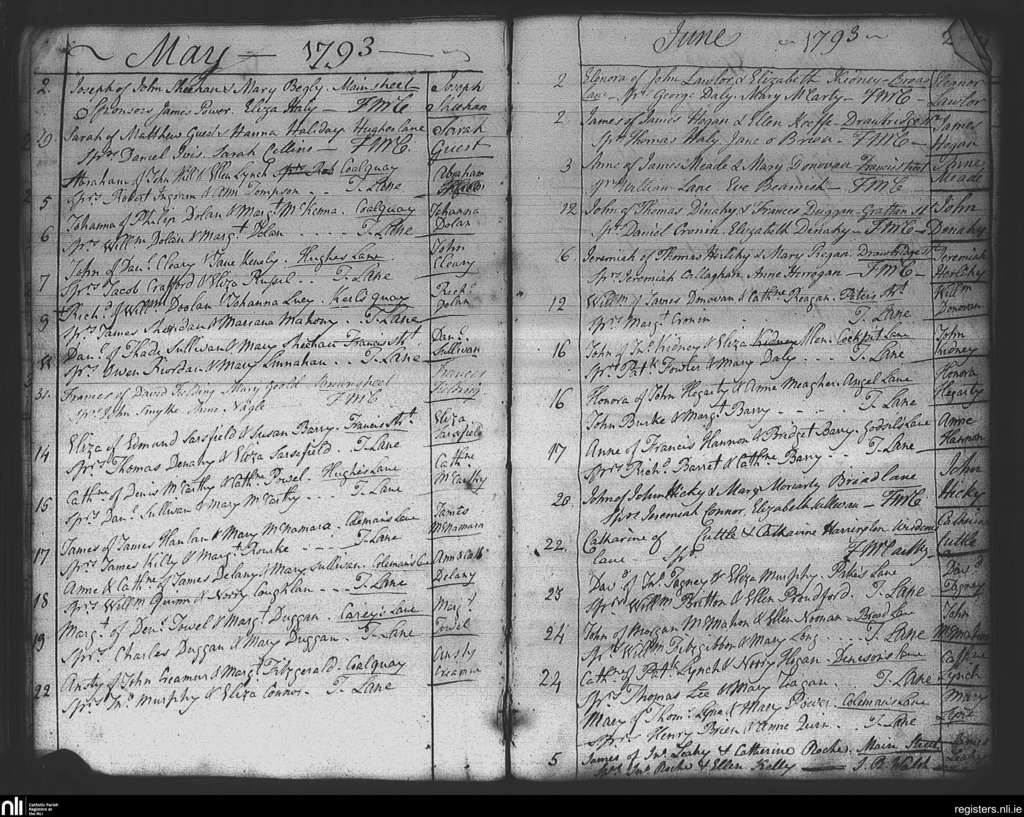 May 1793
2. Joseph of John Sheehan & Mary Begly. Main sheet Joseph
Sponsors James Power. Eliza Haly — FMC Sheehan
29 Sarah of Matthew Guest & Hanna Haliday. Hughes Lane Sarah
Sprs. Daniel Sarah Collins — FMC. Guest
Abraham of John Hill & Ellen Lynch Coalquay Abraham
5 Sprs. Robert Ingram & Ann Tompson .. T. Lane
Johanna of Philip Dolan & Margt. McKenna. Coalquay Johanna
6 Sprs. Willm. Dolan & Margt. Dolan .... T. Lane Dolan
John of Danl. Cleary & Jane Kenely. Hughes Lane John
7 Sprs. Jacob Crafford & Eliza Russel .. T. Lane Cleary
Richd. of Willm. Doolan Johanna Lucy. Keels quay Richd.
9 Sprs. James Sheridan & Mariana Mahony . T. Lane Dolan
Danl. of Thade Sullivan & Mary Sheehan Francis St. Danl.
11 Sprs. Owen Riordan & Mary Linnahan . .. T. Lane Sullivan
31. Frances of David Fielding Mary Goold Francis
Sprs. John Smythe Anne Nagle FMC Fielding
Eliza of Edmund Sarsfield & Susan Barry. Francis St. Eliza
14 Sprs. Thomas Denahy & Eliza Sarsefield. T. Lane Sarsfield
Cathne. of Denis McCarthy & Cathne. Powel. Hughes Lane Cathe.
15 Sprs. Danl. Sullivan & Mary McCarthy .. T. Lane McCarthy
James of James Hanlan & Mary McNamara. Colemans Lane James
17 Sprs. James Killy & Margt. Rourke - - - T. Lane McNamara
Anne & Cathne. of James Delany & Mary Sullivan. Colemans Lane Ann & Cath
18 Sprs. Willm. Quinn & Norry Coughlan - - . T. Lane Delany
Margt. of Denl. Towel & Margt. Duggan. Carey's Lane Margt.
19 Sprs. Charles Duggan & Mary Duggan . T. Lane Towel
Ansty of John Creamer & Margt. Fitzgerald. Coalquay Ansty
22 Sprs. Jno. Murphy & Eliza Connor. T. Lane Creamer
June 1793
2 Elenora of John Lawlor & Elizabeth Kidney — Broad Elenor
Lane — Sprs. George Daly. Mary McCarty — FMC — Lawlor
2 James of James Hogan & Ellen Keeffe. Drawbridge St. James
Sprs. Thomas Haly, Jane o Brien — FMC — Hogan
3 Anne of James Meade & Mary Donovan Francis Street Anne
Sprs. William Lane Eve Beamish — FMC Meade
12 John of Thomas Dinahy & Frances Duggan — Grattan St. John
Sprs. Daniel Cronin Elizabeth Denahy — FMC — Denahy
6 Jeremiah of Thomas Herlihy & Mary Riegan. Drawbridge St. Jeremiah
Sprs. Jeremiah Callaghan Anne Horrogan — FMC — Herlihy
12 Willm. of James Donovan & Cathne. Reagan. Peters St. Willm.
Sprs. Margt. Cronin T. Lane Donovan
16 John of Jno. Kidney & Eliza Kidney Allen. Cockpit Lane John
Sprs. Patk. Fowler & Mary Daly ... T. Lane Kidney
16 Honora of John Hegarty & Anne Meagher. Angel Lane Honora
John Burke & Margt. Barry - . . - T. Lane Hegarty
17 Anne of Francis Hannon & Bridget Barry. Lane Anne
Sprs. Richd. Barret & Cathne. Barry - - . T. Lane Hannon
20 John of John Hicky & Mary Moriarty Broad Lane John
Sprs. Jeremiah Connor, Elizabeth Sullivan — FMC Hicky
22. Catharine of Cuttle & Catharine Harrington Catharine
Lane — Sprs. F McCarthy Cuttle
Davd. of Jno. Fagney & Eliza Murphy. Lane Davd.
23 Sprs. Willm. Britton & Ellen Broudford. T. Lane Fagney
John of Morgan McMahon & Ellen Noonan. Broad Lane John
24 Sprs. Willm. Fitzgibbon & Mary Long . . . . T. Lane McMahon
Cathe. of Patk. Lynch & Norry Hogan. Denison's Lane Cathne
24 Sprs. Thomas Lee & Mary Leagan. T. Lane Lynch
Mary of Thoms. Lyne & Mary Power. Colemans Lane Mary
Sprs. Henry Brien & Anne Quin . T. Lane Lyne
5 James of Jno. Leahy & Catherine Roche. Main Street James
Sprs. Jno. Roche & Ellen Kelly — J. B. Walsh Leahy
nli
Catholic Parish
Registers at
the NLI
registers.nli.ie